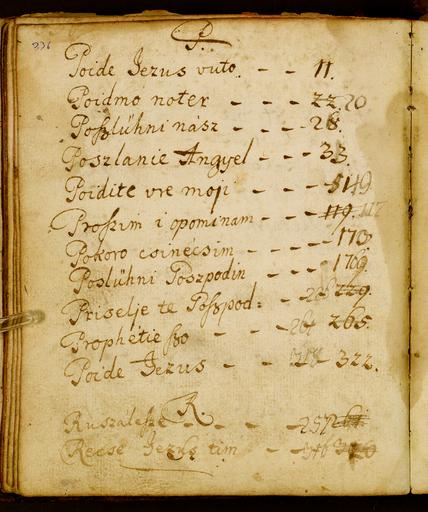 236
P.
Poide Jezus vuto. - - 11.
Poidmo noter - - - 22. 20
Poßlühni nász - - - 28.
Poszlanie Angyel - - - 33.
Poidite vre moji - - - 
Proßim i opominam - - 119. 117
Pokoro csinécsim - - - - 170.
Poslühni Poszpodin - - - 
Priselje te Poßpod: - 229.
Prophetie ßo - - - 265.
Poide Jezus - - - 322.
R.
Ruszaleße - - - 257
Recsé Jezus tim - -